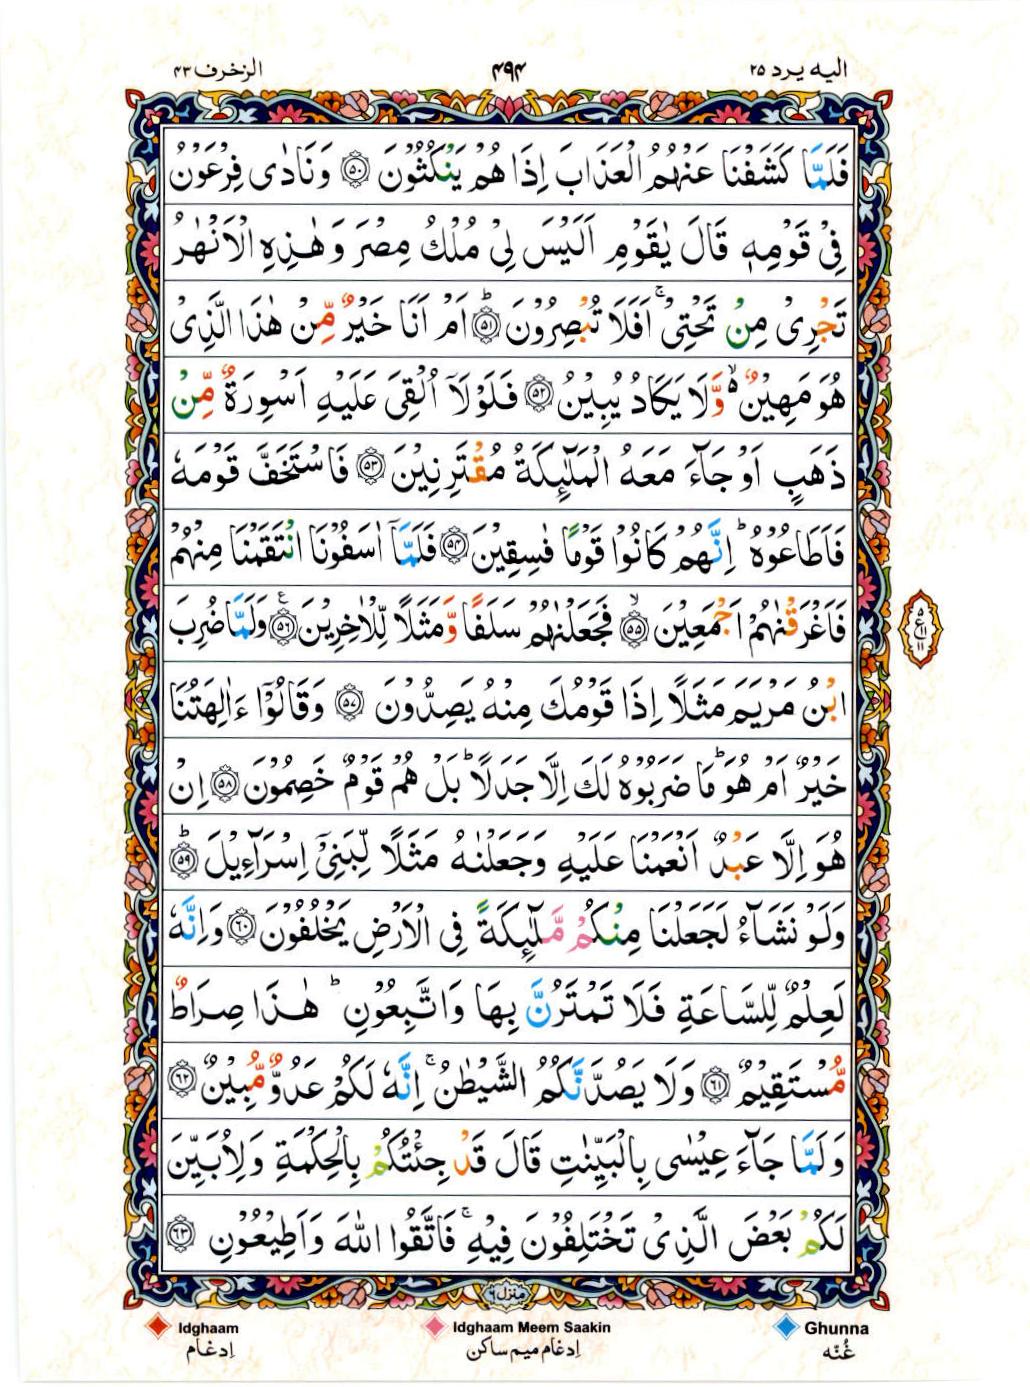 الیه یرد ۲۵
۴۹۴
الزخرف ۴۳
فَلَمَّا كَشَفْنَا عَنْهُمُ الْعَذَابَ اِذَا هُمْ يَنْكُثُوْنَ ۝۵۰ وَنَادٰى فِرْعَوْنُ
فِيْ قَوْمِهٖ قَالَ يٰقَوْمِ اَلَيْسَ لِيْ مُلْكُ مِصْرَ وَهٰذِهِ الْاَنْهٰرُ
تَجْرِيْ مِنْ تَحْتِيْ ۚ اَفَلَا تُبْصِرُوْنَ ۝۵۱ؕ اَمْ اَنَا خَيْرٌ مِّنْ هٰذَا الَّذِيْ
هُوَ مَهِيْنٌ ۙ۬ وَّلَا يَكَادُ يُبِيْنُ ۝۵۲ فَلَوْلَاۤ اُلْقِيَ عَلَيْهِ اَسْوِرَةٌ مِّنْ
ذَهَبٍ اَوْ جَآءَ مَعَهُ الْمَلٰٓئِكَةُ مُقْتَرِنِيْنَ ۝۵۳ فَاسْتَخَفَّ قَوْمَهٗ
فَاَطَاعُوْهُ ؕ اِنَّهُمْ كَانُوْا قَوْمًا فٰسِقِيْنَ ۝۵۴ فَلَمَّاۤ اٰسَفُوْنَا انْتَقَمْنَا مِنْهُمْ
فَاَغْرَقْنٰهُمْ اَجْمَعِيْنَ ۝۵۵ۙ فَجَعَلْنٰهُمْ سَلَفًا وَّمَثَلًا لِّلْاٰخِرِيْنَ ۝۵۶ع وَلَمَّا ضُرِبَ
ابْنُ مَرْيَمَ مَثَلًا اِذَا قَوْمُكَ مِنْهُ يَصِدُّوْنَ ۝۵۷ وَقَالُوْۤا ءَاٰلِهَتُنَا
خَيْرٌ اَمْ هُوَ ؕ مَا ضَرَبُوْهُ لَكَ اِلَّا جَدَلًا ؕ بَلْ هُمْ قَوْمٌ خَصِمُوْنَ ۝۵۸ اِنْ
هُوَ اِلَّا عَبْدٌ اَنْعَمْنَا عَلَيْهِ وَجَعَلْنٰهُ مَثَلًا لِّبَنِيْۤ اِسْرَآءِيْلَ ۝۵۹ؕ
وَلَوْ نَشَآءُ لَجَعَلْنَا مِنْكُمْ مَّلٰٓئِكَةً فِي الْاَرْضِ يَخْلُفُوْنَ ۝۶۰ وَاِنَّهٗ
لَعِلْمٌ لِّلسَّاعَةِ فَلَا تَمْتَرُنَّ بِهَا وَاتَّبِعُوْنِ ؕ هٰذَا صِرَاطٌ
مُّسْتَقِيْمٌ ۝۶۱ وَلَا يَصُدَّنَّكُمُ الشَّيْطٰنُ ۚ اِنَّهٗ لَكُمْ عَدُوٌّ مُّبِيْنٌ ۝۶۲
وَلَمَّا جَآءَ عِيْسٰى بِالْبَيِّنٰتِ قَالَ قَدْ جِئْتُكُمْ بِالْحِكْمَةِ وَلِاُبَيِّنَ
لَكُمْ بَعْضَ الَّذِيْ تَخْتَلِفُوْنَ فِيْهِ ۚ فَاتَّقُوا اللّٰهَ وَاَطِيْعُوْنِ ۝۶۳
۵
ع۱۱
۱۱
منزل ۶
Idghaam
Idghaam Meem Saakin
Ghunna
اِدغام
اِدغام میم ساکن
غُنّه